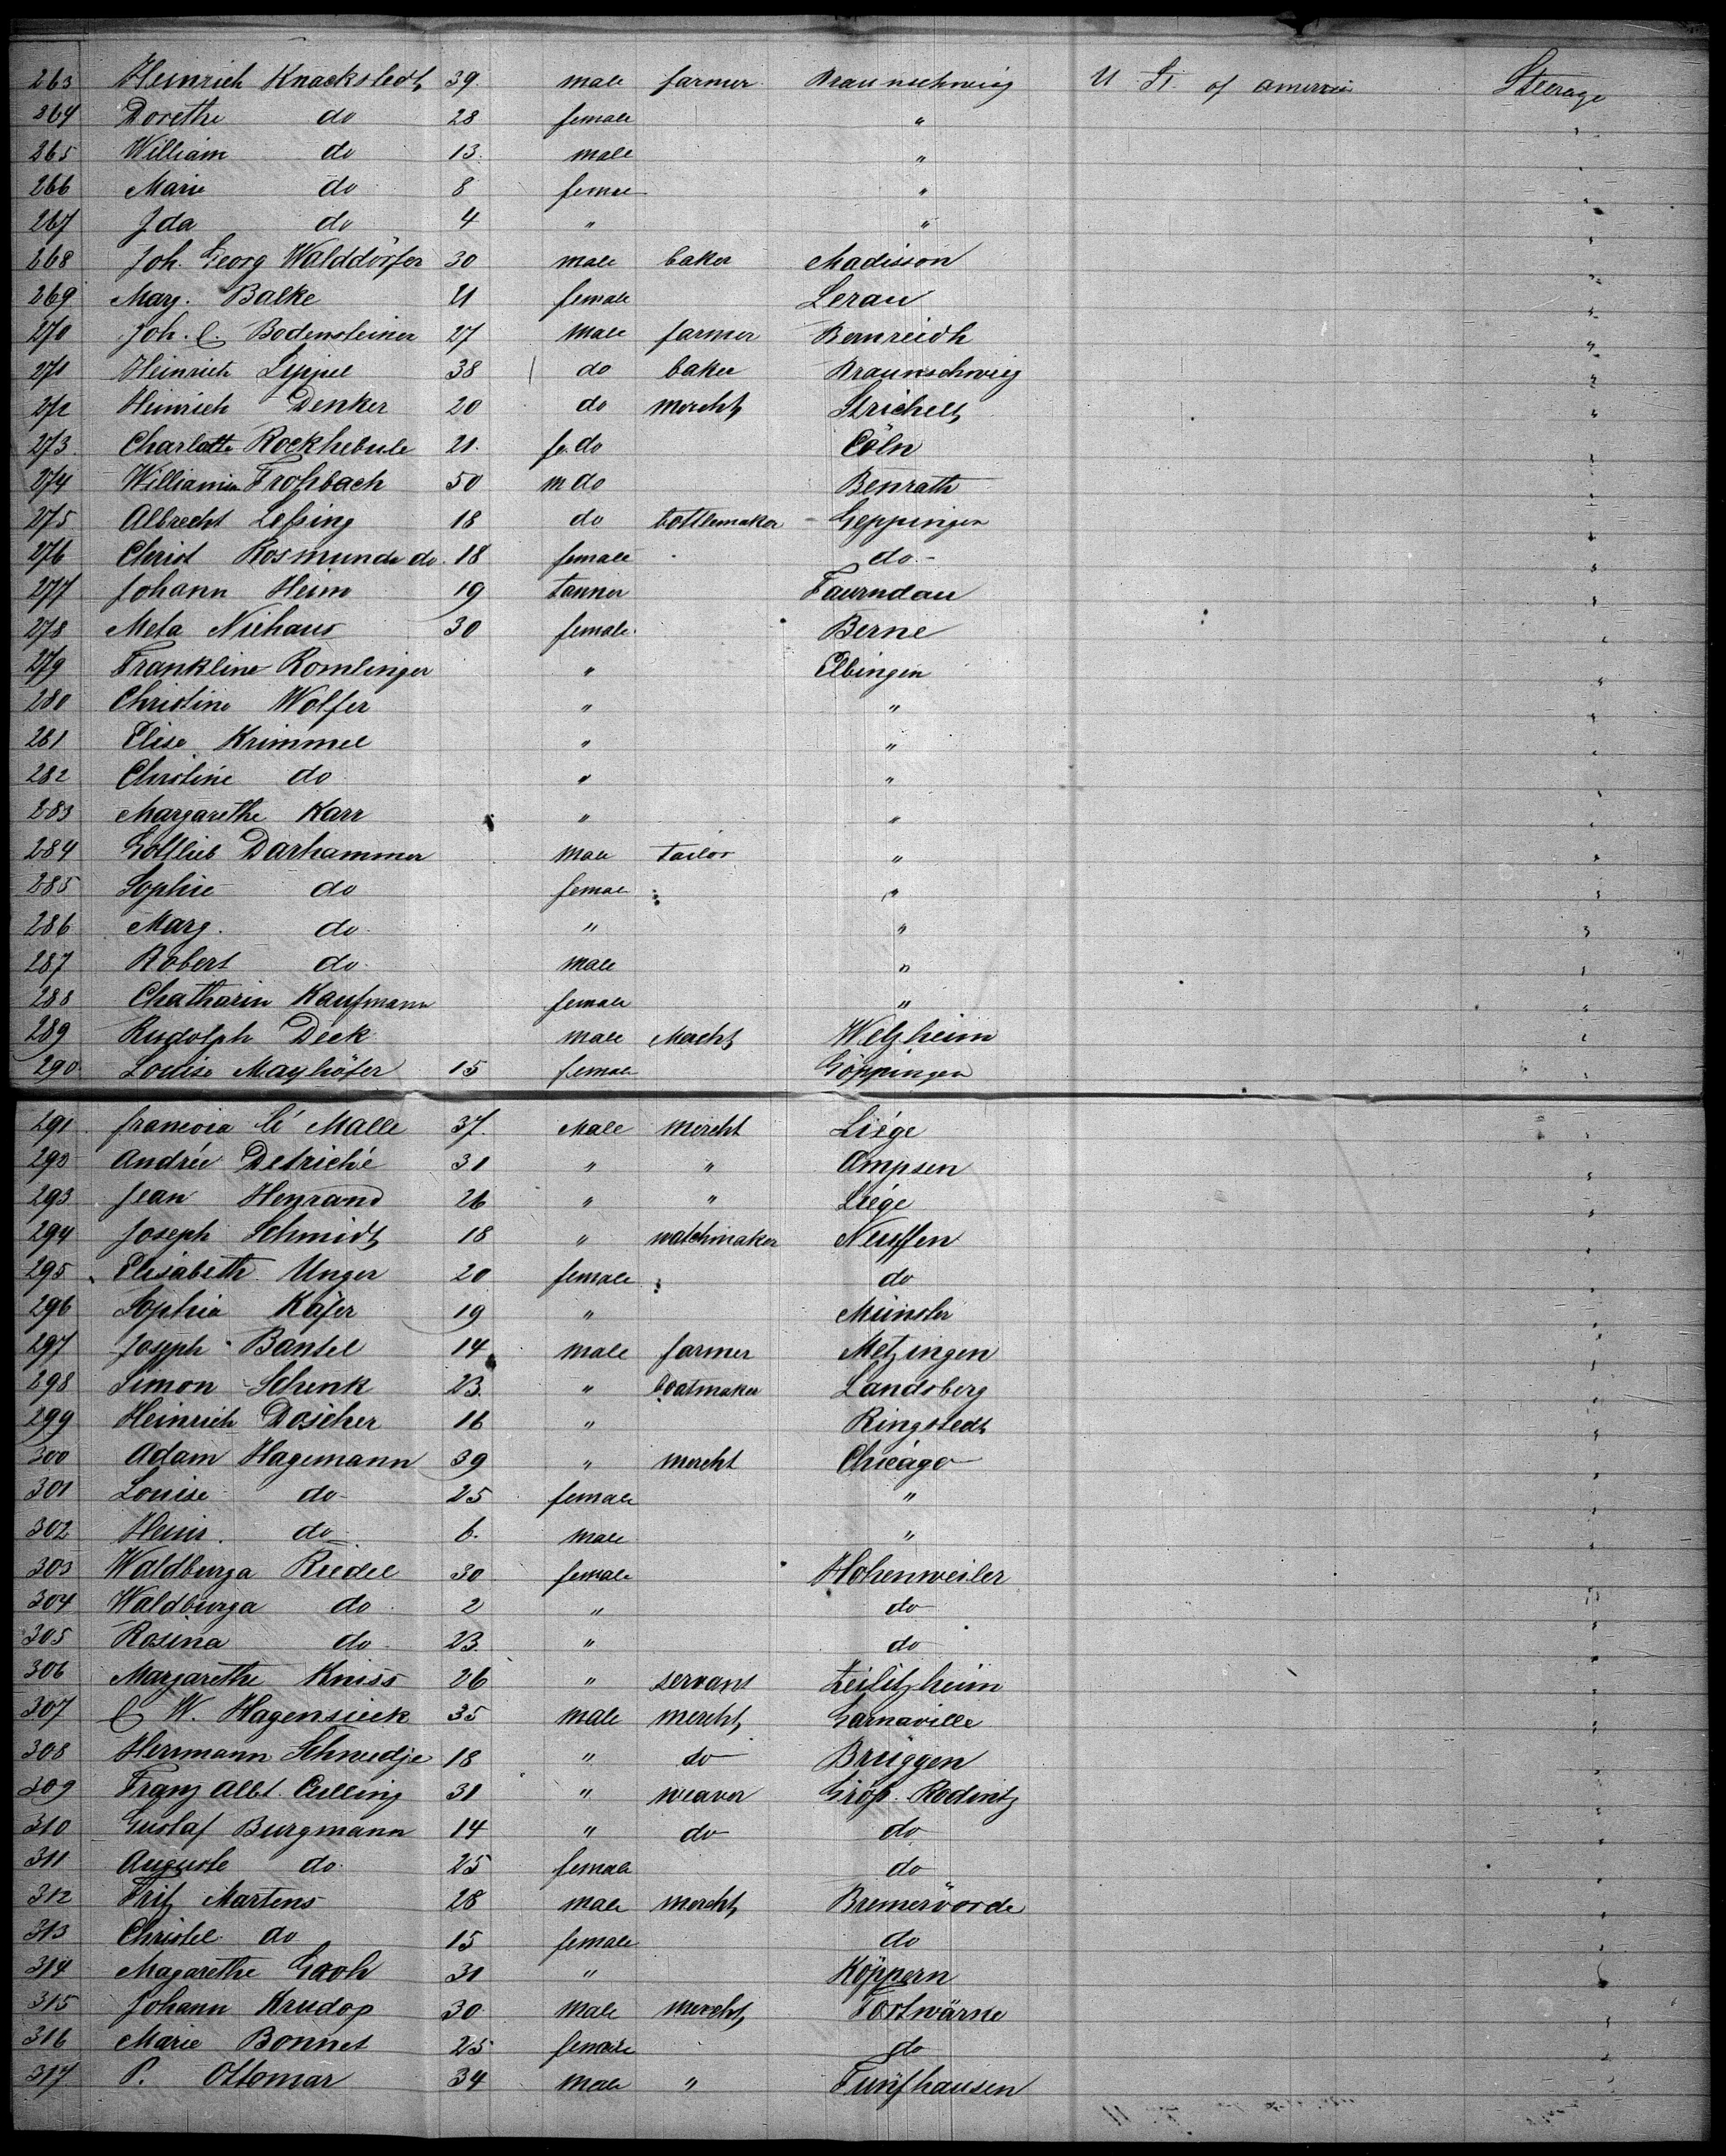 263 Heinrich Knackstedt 39. male farmer Braunschweig U St. of america Steerage
264 Dorethe do 28 female "
265 William do 13. male "
266 Marie do 8 female "
267 Ida do 4 " "
268 Joh. Georg Walddörfer 30 male baker Madisson
269 Marg. Balke 21 female Lerau
270 Joh. C. Bodensteiner 27 male farmer Bernreidh
271 Heinrich Lippel 38 do baker Braunschweig
272 Heinrich Denker 20 do mercht Strichelt
273. Charlotte Rockhebule 21. fe.do Cöln
274 William Frohbach 50 m do Benrath
275 Albrecht Leßing 18 do bottlemaker Geppingen
276 Christ Rosmunde do. 18 female do.
277 Johann Heim 19 tanner Faurndau
278 Meta Niehaus 30 female. Berne
279 Frankline Romlinger " Elbingen
280 Christine Wolfer " "
281 Elise Krimmel " "
282 Christine do " "
283 Margarethe Karr " "
284 Gottlieb Darhammer male tailor "
285 Sophie do female "
286 Marg. do " "
287 Robert do male "
288 Chatharin Kaufmann female "
289 Rudolph Deck male Mercht Welzheim
290 Louise Mayhöfer 15 female Göppingen
291. francoia lé Malle 37. Male mercht Liége
292 Andrée Detriché 31 " " Ampsen
293 Jean Heyrand 26 " " Liége
294 Joseph Schmidt 18 " watchmaker Neuffen
295 Elisabeth Unger 20 female do
296 Sophia Käfer 19 " Münster
297 Joseph Bantel 14 male farmer Metzingen
298 Simon Schenk 23. " boatmaker Landsberg
299 Heinrich Doscher 16 " Ringstedt
300 Adam Hagemann 39 " mercht Chicago
301 Louise do 25 female "
302 Heinr. do 6. male "
303 Waldburga Riedel 30 female Hohenweiler
304 Waldburga do 2 " do
305 Rosina do 23. " do
306 Margarethe Kniss 26 " servant Zeilitzheim
307 C W. Hagensieck 35 male mercht Garnaville
308 Herrmann Schnedje 18 " do Brüggen
309 Franz Albt. Cilling 31 " weaver Groß. Rodintz
310 Gustaf Burgmann 14 " do do
311 Auguste do. 25 female do
312 Fritz Martens 28 male mercht Bremervorde
313 Christel do 15 female do
314 Magarethe Groh 31 " Köppern
315 Johann Krudop 30 male mercht Tostwärne
316 Marie Bonnet 25 female do
317 P. Ottomar 34 male " Funfhausen